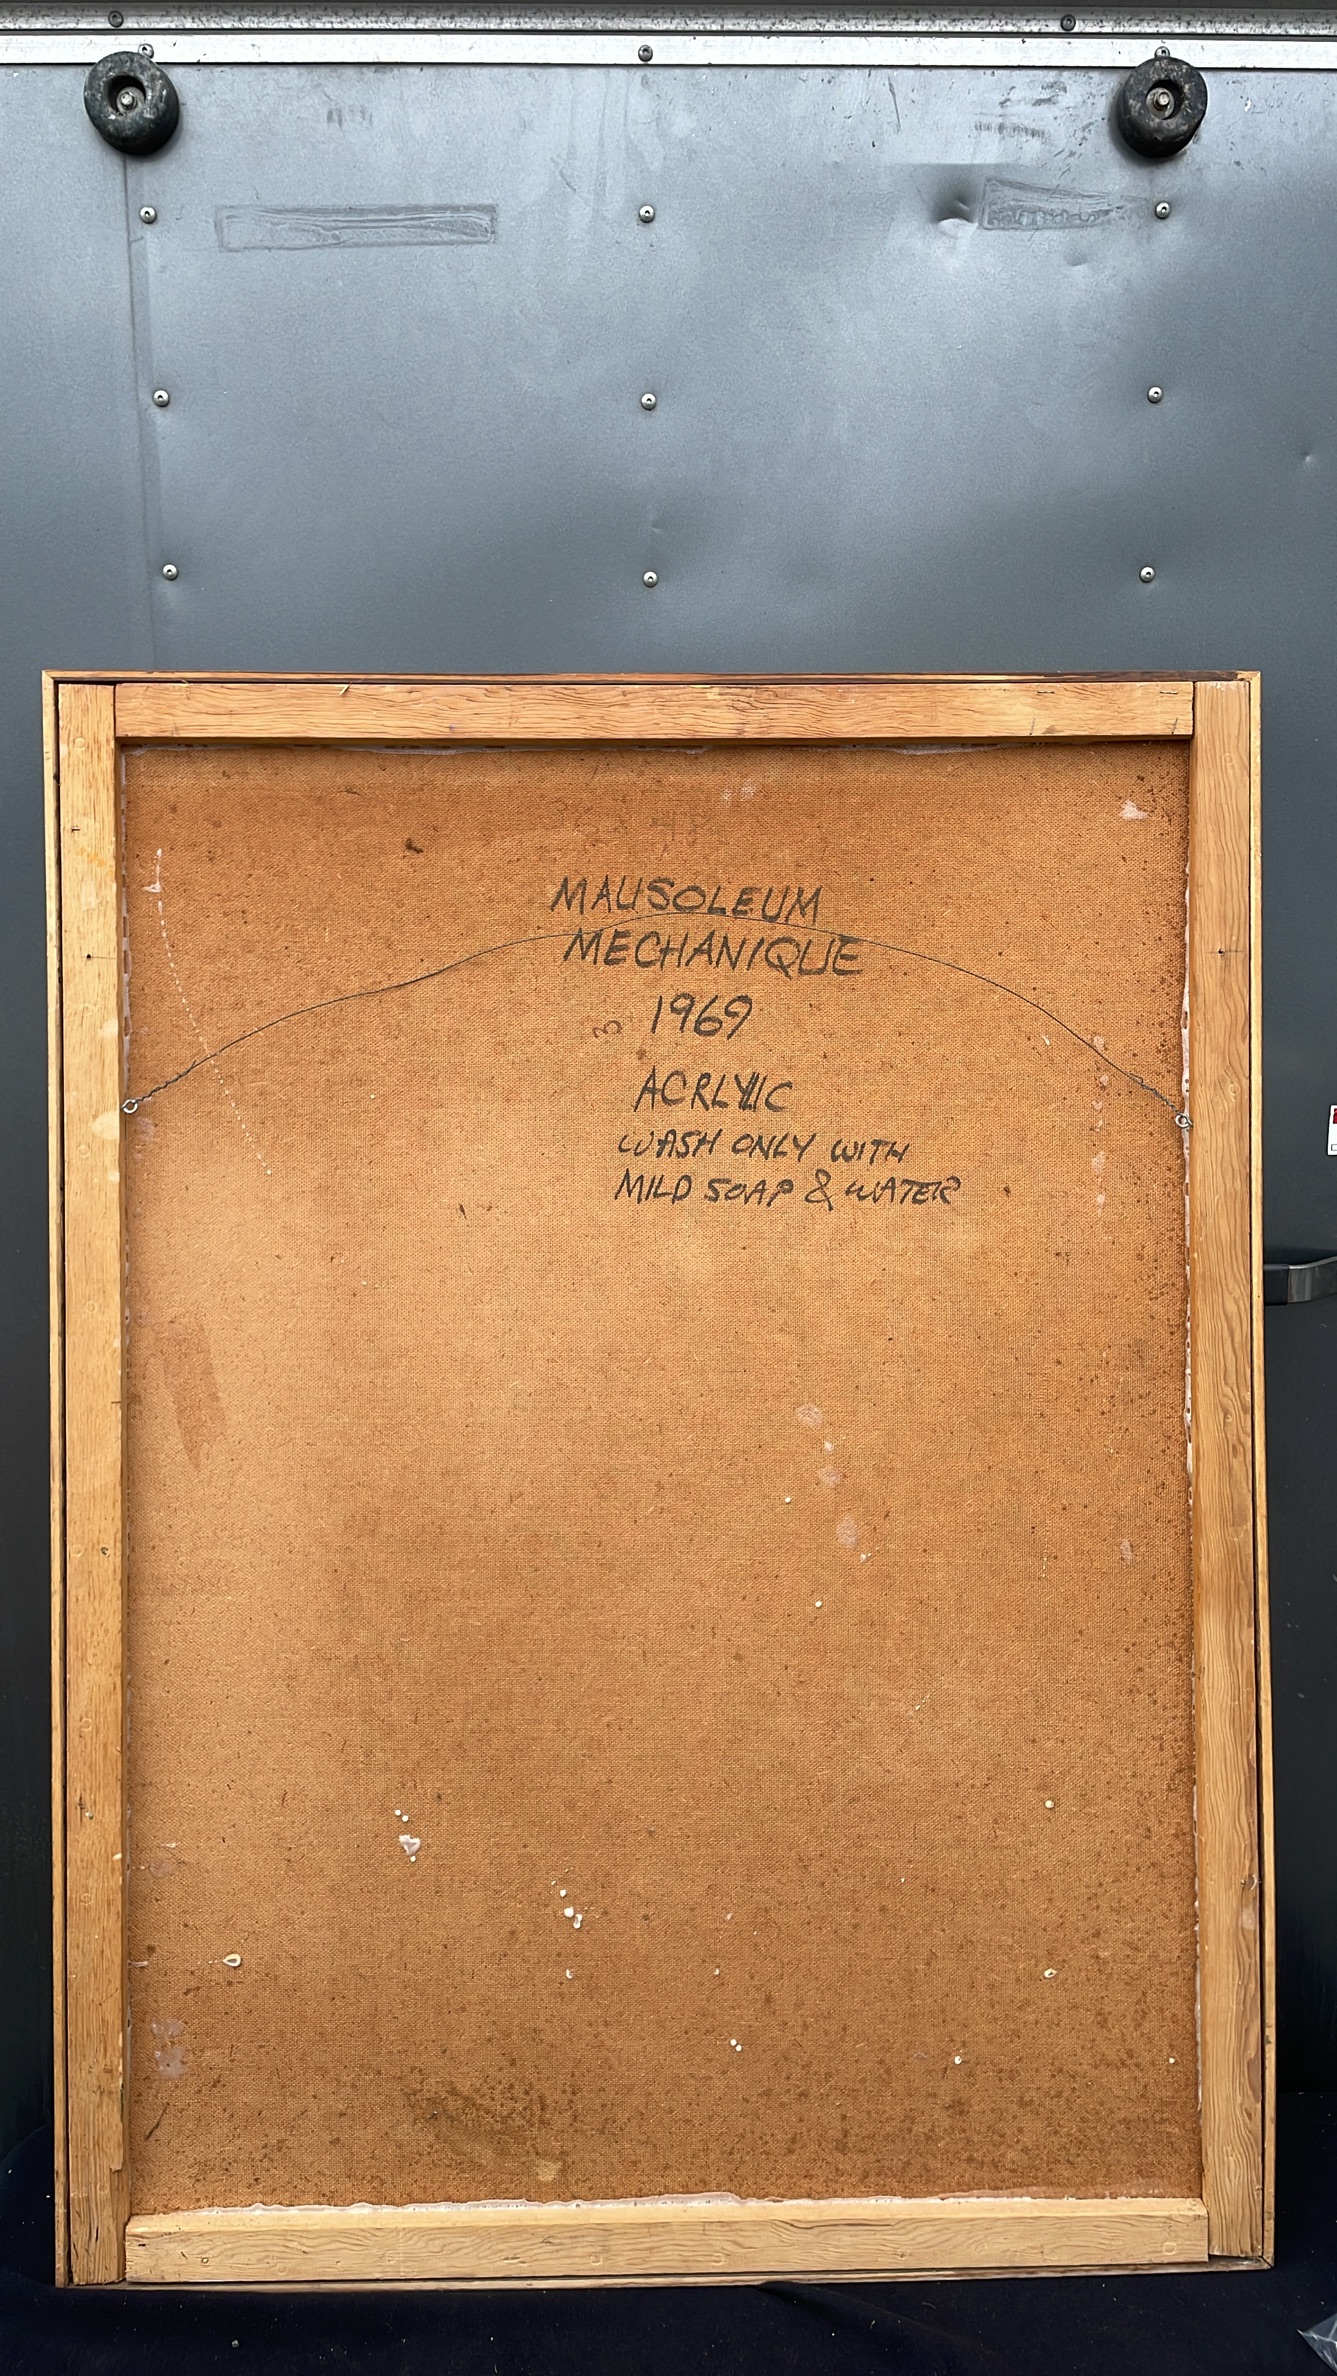 MAUSOLEUM
MECHANIQUE
1969
ACRLYLIC
WASH ONLY WITH
MILD SOAP & WATER